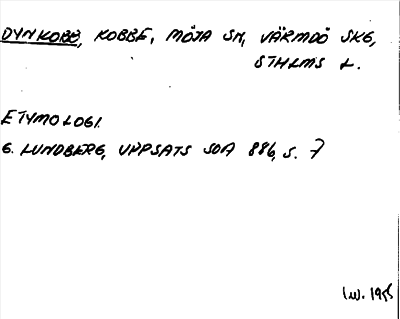 DYNKOBB, KOBBE, MÖJA SN, VÄRMDÖ SKG,
STHLMS L.
ETYMOLOGI.
G. LUNDBERG, UPPSATS SOA 886, S. 7
I.W. 1955